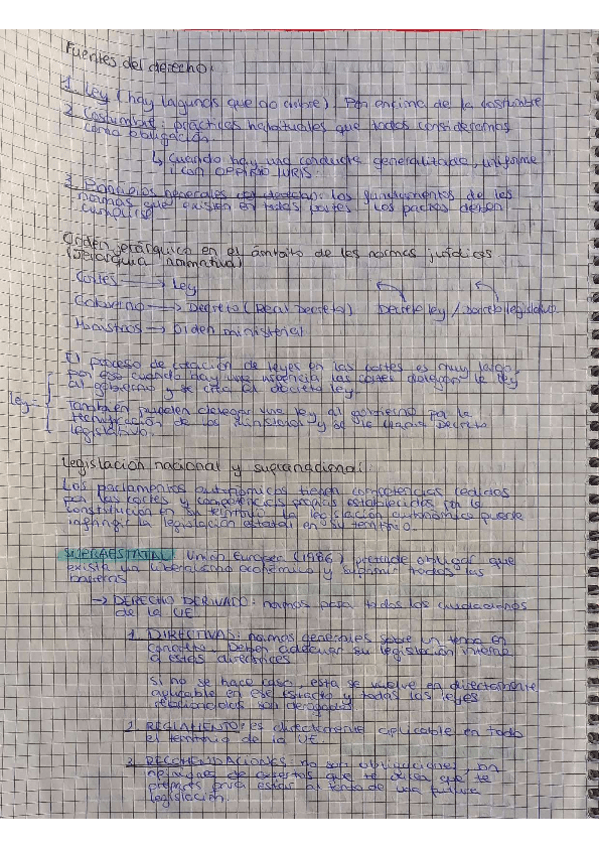 Fuentes del derecho:
1. Ley (hay lagunas que no cubre). Por encima de la costumbre
2. Costumbre: prácticas habituales que todos consideramos
como obligación.
↳ Cuando hay una conducta generalizada, uniforme
y con OPINIO IURIS.
3. Principios generales del derecho: los fundamentos de les
normas que existen en todas partes. Los pactos deben
cumplirse
Orden jerárquico en el ámbito de les normes jurídices
(jerarquía normativa)
Cortes → Ley
Gobierno → Decreto (Real Decreto) Decreto ley / Decreto legislativo
Ministros → Orden ministerial
El proceso de creación de leyes en las cortes es muy largo,
por eso cuando hay una urgencia las cortes delegan la ley
al gobierno y se crea el decreto ley.
Ley
También pueden delegar una ley al gobierno por la
tecnificación de los y se le llama Decreto
legislativo.
Legislación nacional y supranacional
Los parlamentos autonómicos tienen competencias cedidas
por las cortes y competencias propias establecidas por la
Constitución en su territorio. La legislación autonómica puede
infringir la legislación estatal en su territorio.
SUPRAESTATAL: Unión Europea (1986) pretende obligar que
exista un liberalismo económico y suprimir todas las
barreras
→ DERECHO DERIVADO: normas para todos los ciudadanos
de la UE
1. DIRECTIVAS: normas generales sobre un tema en
concreto. Deben adecuar su legislación interna
a estas directrices
Si no se hace caso, esta se vuelve en directamente
aplicable en ese Estado y todas las leyes
relacionadas son derogadas
2. REGLAMENTO: es directamente aplicable en todo
el territorio de la UE.
3. RECOMENDACIONES: no son obligaciones, son
de expertos que te avisa que te
prepares para estar al tanto de una futura
legislación.